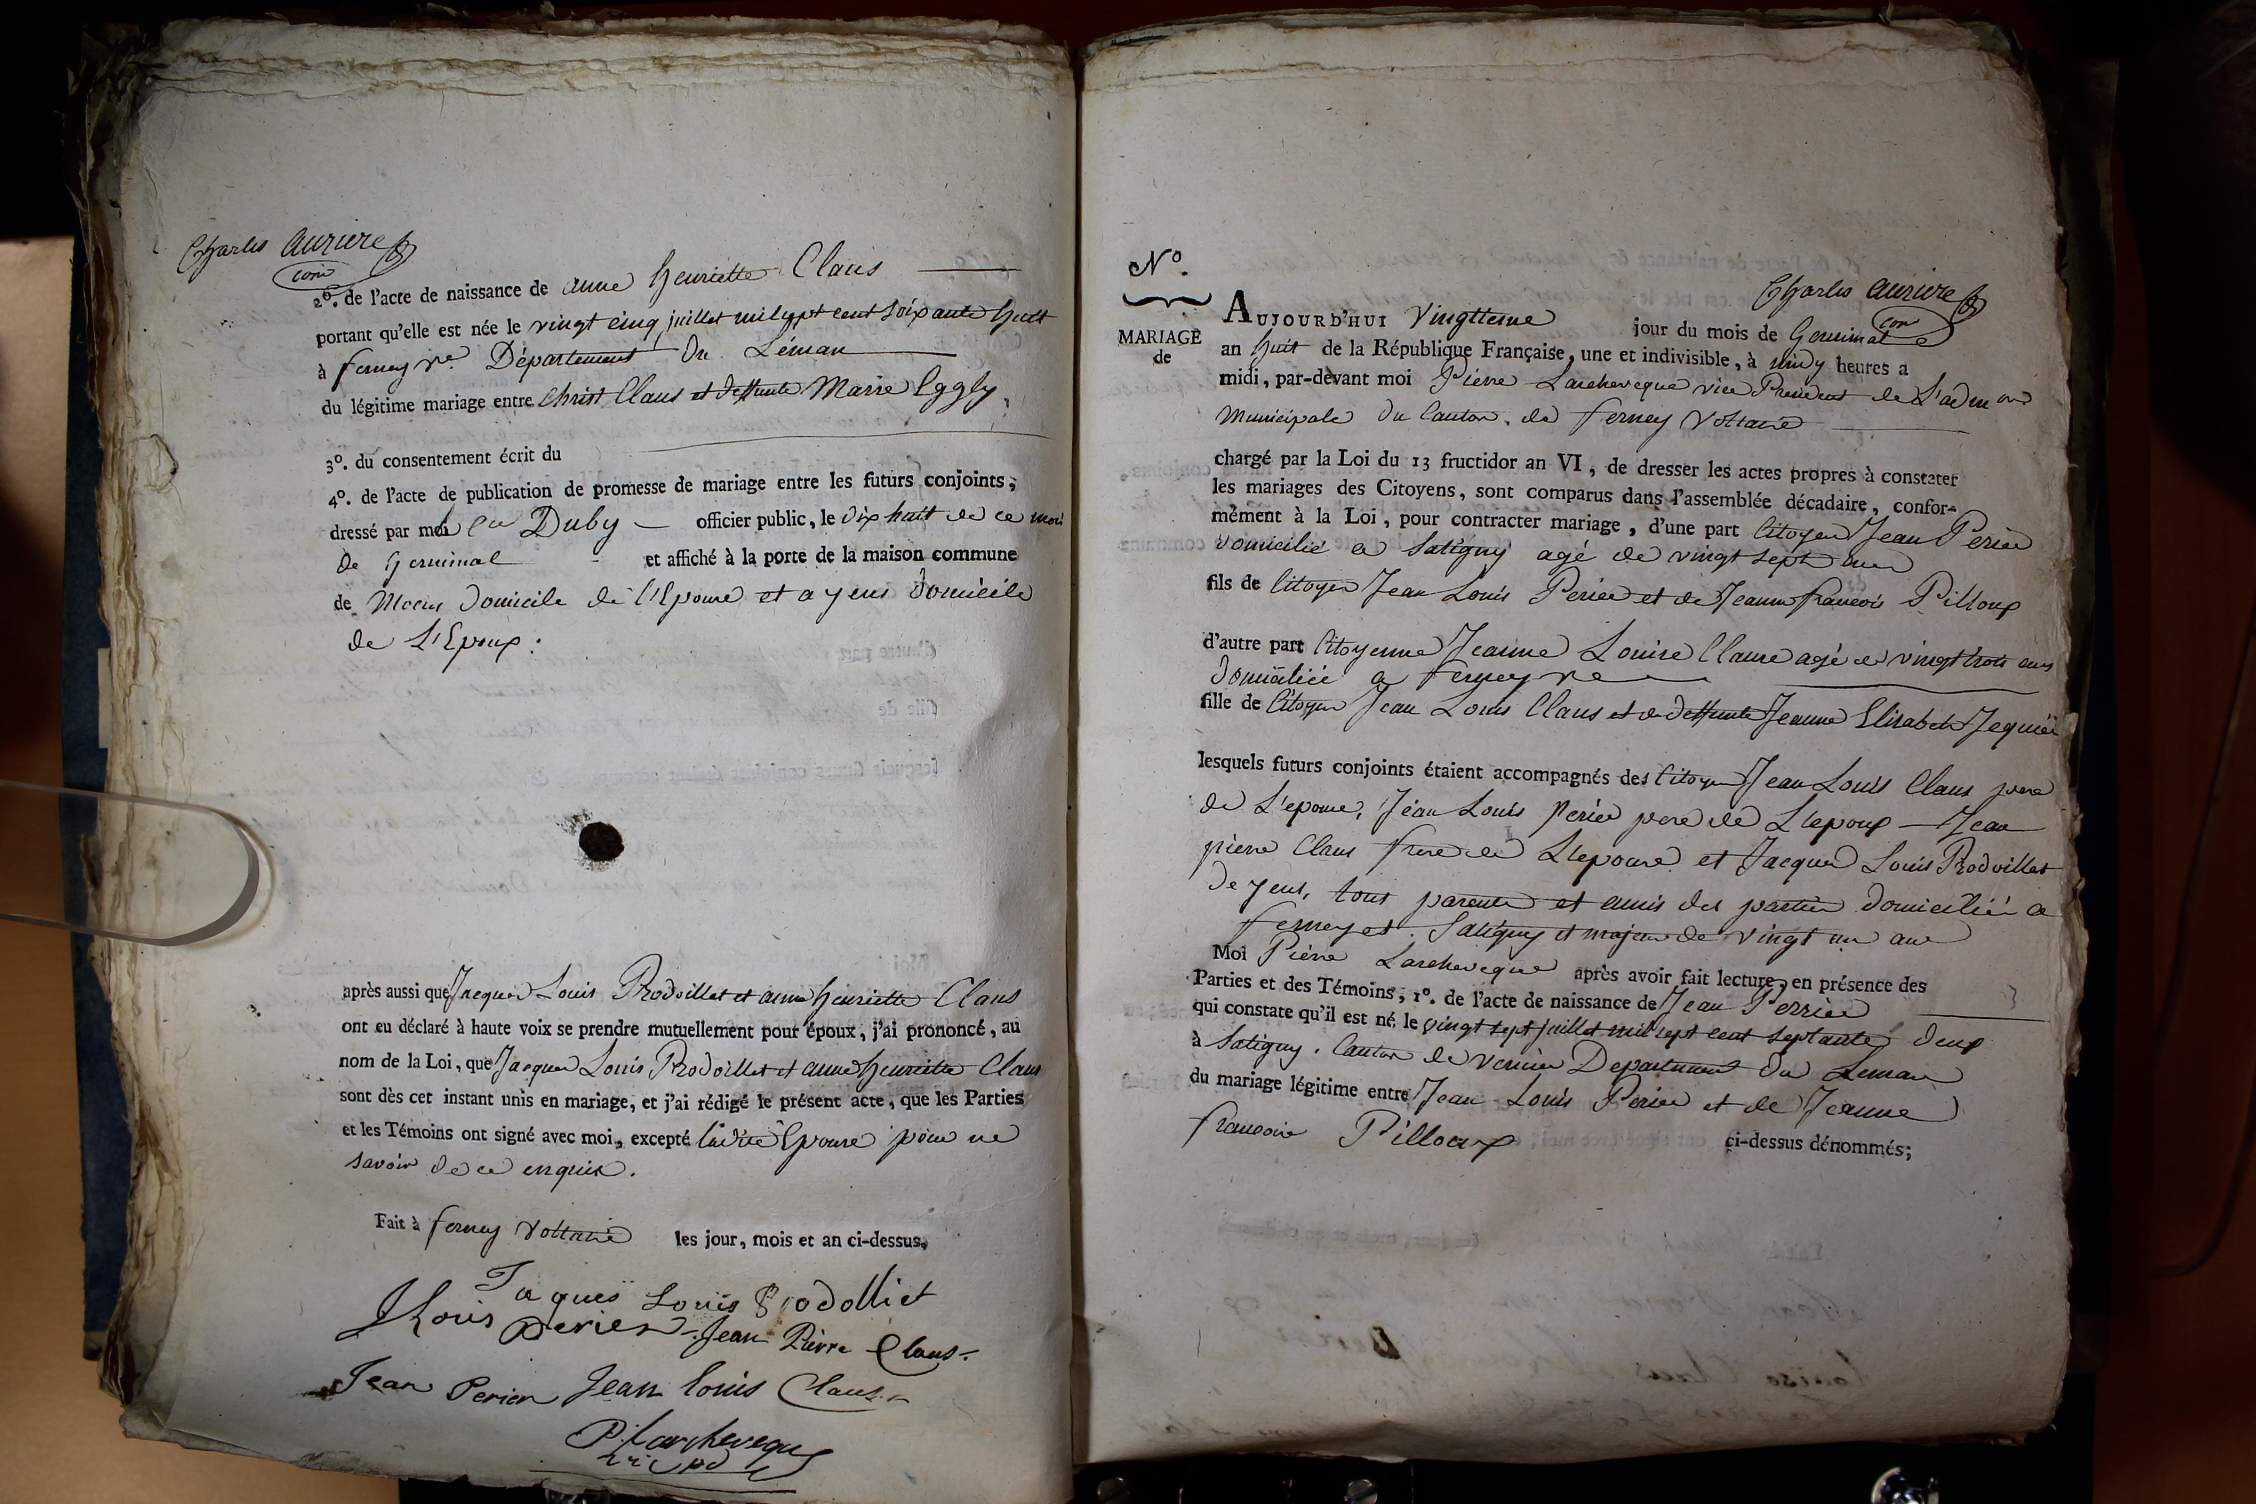 Charles auriere
com
2º. de l'acte de naissance de anne henriette Claus
portant qu'elle est née le vingt cinq juillet mil sept cent soixante huit
à ferney Vre. Département Du Léman
du légitime mariage entre Christ Claus et deffunte Marie Eggly,
3º. du consentement écrit du
4º. de l'acte de publication de promesse de mariage entre les futurs conjoints,
dressé par moi Duby officier public, le dix huit de ce mois
de Germinal et affiché à la porte de la maison commune
de domicile de l'Epouse et a yens domicile
de L'Epoux.
après aussi que Jacques Louis Rodoillet et anne henriette Claus
ont eu déclaré à haute voix se prendre mutuellement pour époux, j'ai prononcé, au
nom de la Loi, que Jacques Louis Rodoillet et anne henriette Claus
sont dès cet instant unis en mariage, et j'ai rédigé le présent acte, que les Parties
et les Témoins ont signé avec moi, excepté ladite Epouse pour ne
savoir de ce enquis.
Fait à ferney Voltaire les jour, mois et an ci-dessus.
Jaques Louis Rodolliet
J Louis Perier Jean Pierre Claus.
Jean Perier Jean louis Claus
P. Larcheveque
Nº.
MARIAGE
de
Charles auriere
com
AUJOURD'HUI Vingtieme jour du mois de Germinal
an huit de la République Française, une et indivisible, à midy heures a
midi, par-devant moi Pierre Larcheveque vice President de L'adm on
Municipale du Canton de ferney Voltaire
chargé par la Loi du 13 fructidor an VI, de dresser les actes propres à constater
les mariages des Citoyens, sont comparus dans l'assemblée décadaire, confor-
mément à la Loi, pour contracter mariage, d'une part Citoyen Jean Perier
domicilié a Satigny agé de vingt sept ans
fils de Citoyen Jean Louis Perier et de Jeanne francois Pilloux
d'autre part Citoyenne Jeanne Louise Claus agé de vingt trois ans
domiciliée a ferney Vre
fille de Citoyen Jean Louis Claus et de deffunte Jeanne Elisabeth Jequier
lesquels futurs conjoints étaient accompagnés des Citoyen Jean Louis Claus pere
de L'epouse, Jean Louis Perier pere de L'epoux Jean
pierre Claus frere de L'epouse et Jacques Louis Rodoillet
de yens, tous parents et amis des parties domiciliés a
ferney et Satigny et majeurs de vingt un ans
Moi Pierre Larcheveque après avoir fait lecture, en présence des
Parties et des Témoins, 1º. de l'acte de naissance de Jean Perrier
qui constate qu'il est né le vingt sept juillet mil sept cent septante deux
à Satigny. Canton de Vernier Departement du Leman
du mariage légitime entre Jean Louis Perier et de Jeanne
francoise Pilloux ci-dessus dénommés;